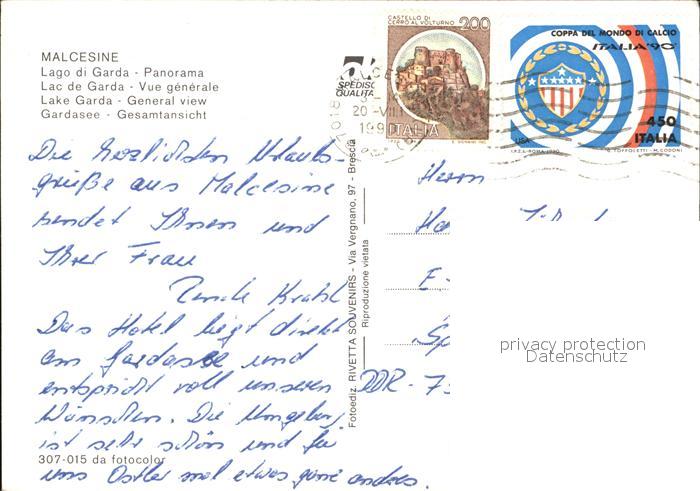 MALCESINE
Lago di Garda - Panorama
Lac de Garda - Vue générale
Lake Garda - General view
Gardasee - Gesamtansicht
CASTELLO DI
CERRO AL VOLTURNO 200
ITALIA
COPPA DEL MONDO DI CALCIO
ITALIA '90
450
ITALIA
USA
I.P.Z.S. - ROMA - 1990
G. TOPPOLETTI - M. CODONI
20 -VIII
Die herzlichsten Urlaubs-
grüße aus Malcesine
sendet Ihnen und
Ihrer Frau
Krahl
Das Hotel liegt direkt
am Gardasee und
entspricht voll unseren
Wünschen. Die Umgebung
ist sehr schön und für
uns Ostler mal etwas ganz anderes.
307-015 da fotocolor
Fotoediz. RIVETTA SOUVENIRS - Via Vergnano, 97 - Brescia
Riproduzione vietata
Herrn
Ha
E
Sp
DDR - 7
privacy protection
Datenschutz